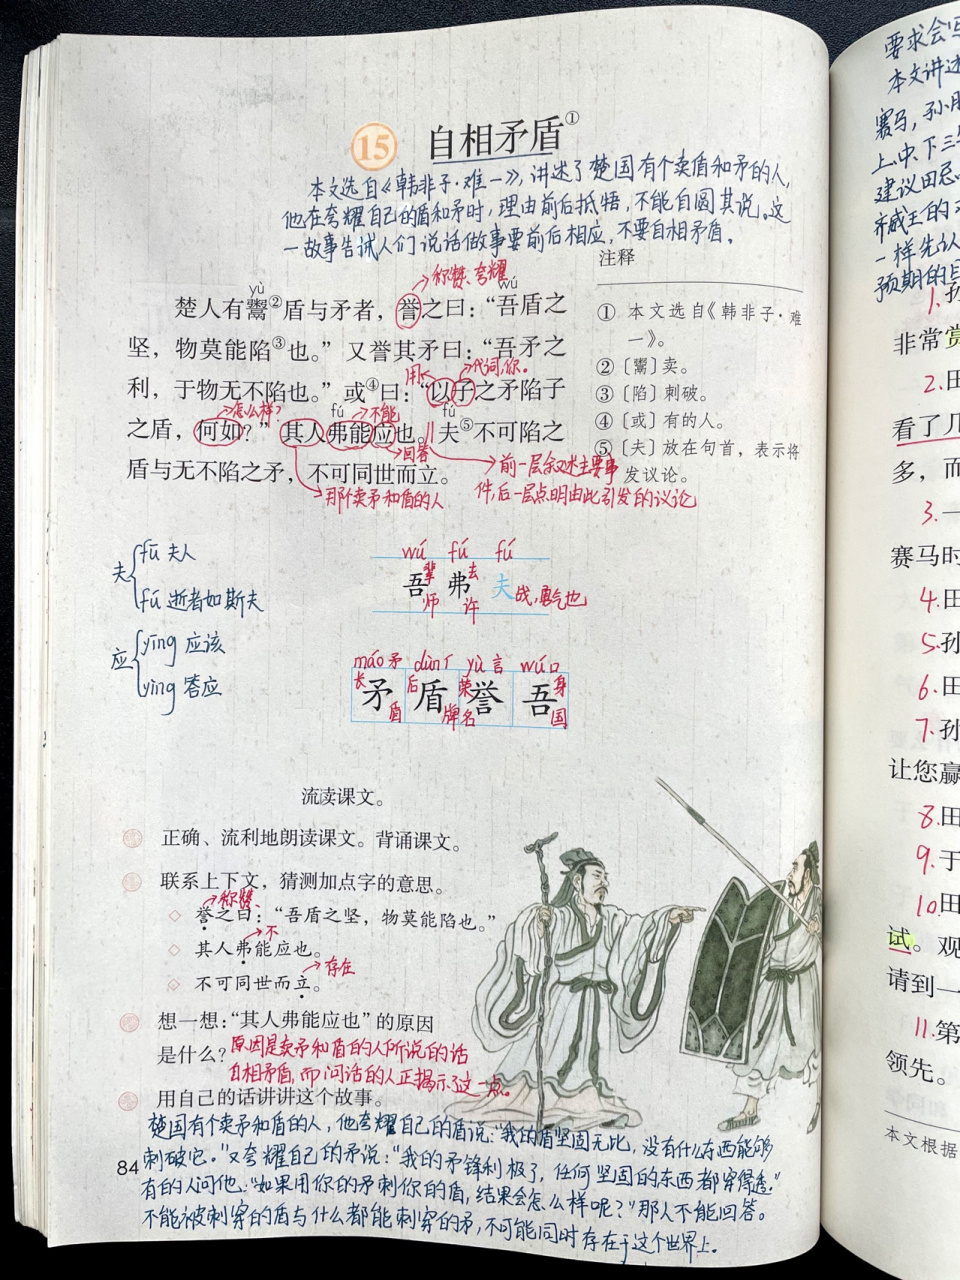 15 自相矛盾①
本文选自《韩非子·难一》,讲述了楚国有个卖盾和矛的人,
他在夸耀自己的盾和矛时,理由前后抵牾,不能自圆其说。这
一故事告诫人们说话做事要前后相应,不要自相矛盾。
注释
称赞、夸耀
yù wú
楚人有鬻②盾与矛者,誉之曰:“吾盾之
坚,物莫能陷③也。”又誉其矛曰:“吾矛之
用 代词,你。
利,于物无不陷也。”或④曰:“以子之矛陷子
怎么样? fú 不能 fú
之盾,何如?”其人弗能应也。夫⑤不可陷之
回答
盾与无不陷之矛,不可同世而立。
那个卖矛和盾的人
前一层叙述主要事
件,后一层点明由此引发的议论
① 本文选自《韩非子·难
一》。
②〔鬻〕卖。
③〔陷〕刺破。
④〔或〕有的人。
⑤〔夫〕放在句首,表示将
发议论。
夫
fū 夫人
fú 逝者如斯夫
应
yīng 应该
yìng 答应
wú fú fú
吾 弗 夫
辈 去
师 许
战,勇气也
máo 矛 dùn 厂 yù 言 wú 口
矛 盾 誉 吾
长 后 荣 身
盾 牌 名 国
流读课文。
正确、流利地朗读课文。背诵课文。
联系上下文,猜测加点字的意思。
称赞、
◇ 誉之曰:“吾盾之坚,物莫能陷也。”
不
◇ 其人弗能应也。
存在
◇ 不可同世而立。
想一想:“其人弗能应也”的原因
是什么?原因是卖矛和盾的人所说的话
自相矛盾,而问话的人正揭示了这一点。
用自己的话讲讲这个故事。
楚国有个卖矛和盾的人,他夸耀自己的盾说:“我的盾坚固无比,没有什么东西能够
84 刺破它。”又夸耀自己的矛说:“我的矛锋利极了,任何坚固的东西都穿得透。”
有的人问他:“如果用你的矛刺你的盾,结果会怎么样呢?”那人不能回答。
不能被刺穿的盾与什么都能刺穿的矛,不可能同时存在于这个世界上。
要求会写
本文讲述
赛马,孙
上、中、下三
建议田忌
齐威王的
一样先认
预期的
1.
非常赏
2.田
看了几
多,而
3.一
赛马时
4.田
5.孙
6.田
7.孙
让您赢
8.田
9.于
10.田
试。观
请到一
11.第
领先。
本文根据